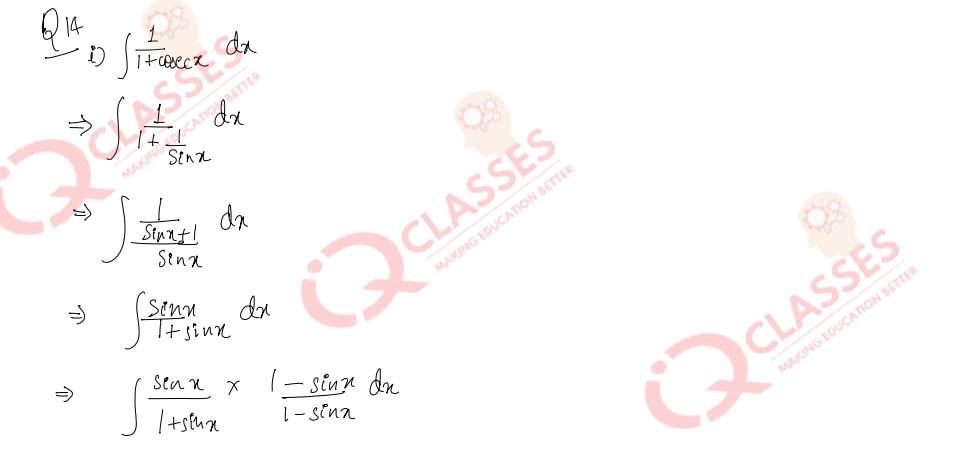 Q14
i) ∫ 1/(1+cosecx) dx
⇒ ∫ 1/(1 + 1/Sinx) dx
⇒ ∫ 1/((Sinx+1)/Sinx) dx
⇒ ∫ Sinx/(1+sinx) dx
⇒ ∫ sinx/(1+sinx) × (1-sinx)/(1-sinx) dx
iQ CLASSES
MAKING EDUCATION BETTER
iQ CLASSES
MAKING EDUCATION BETTER
iQ CLASSES
MAKING EDUCATION BETTER